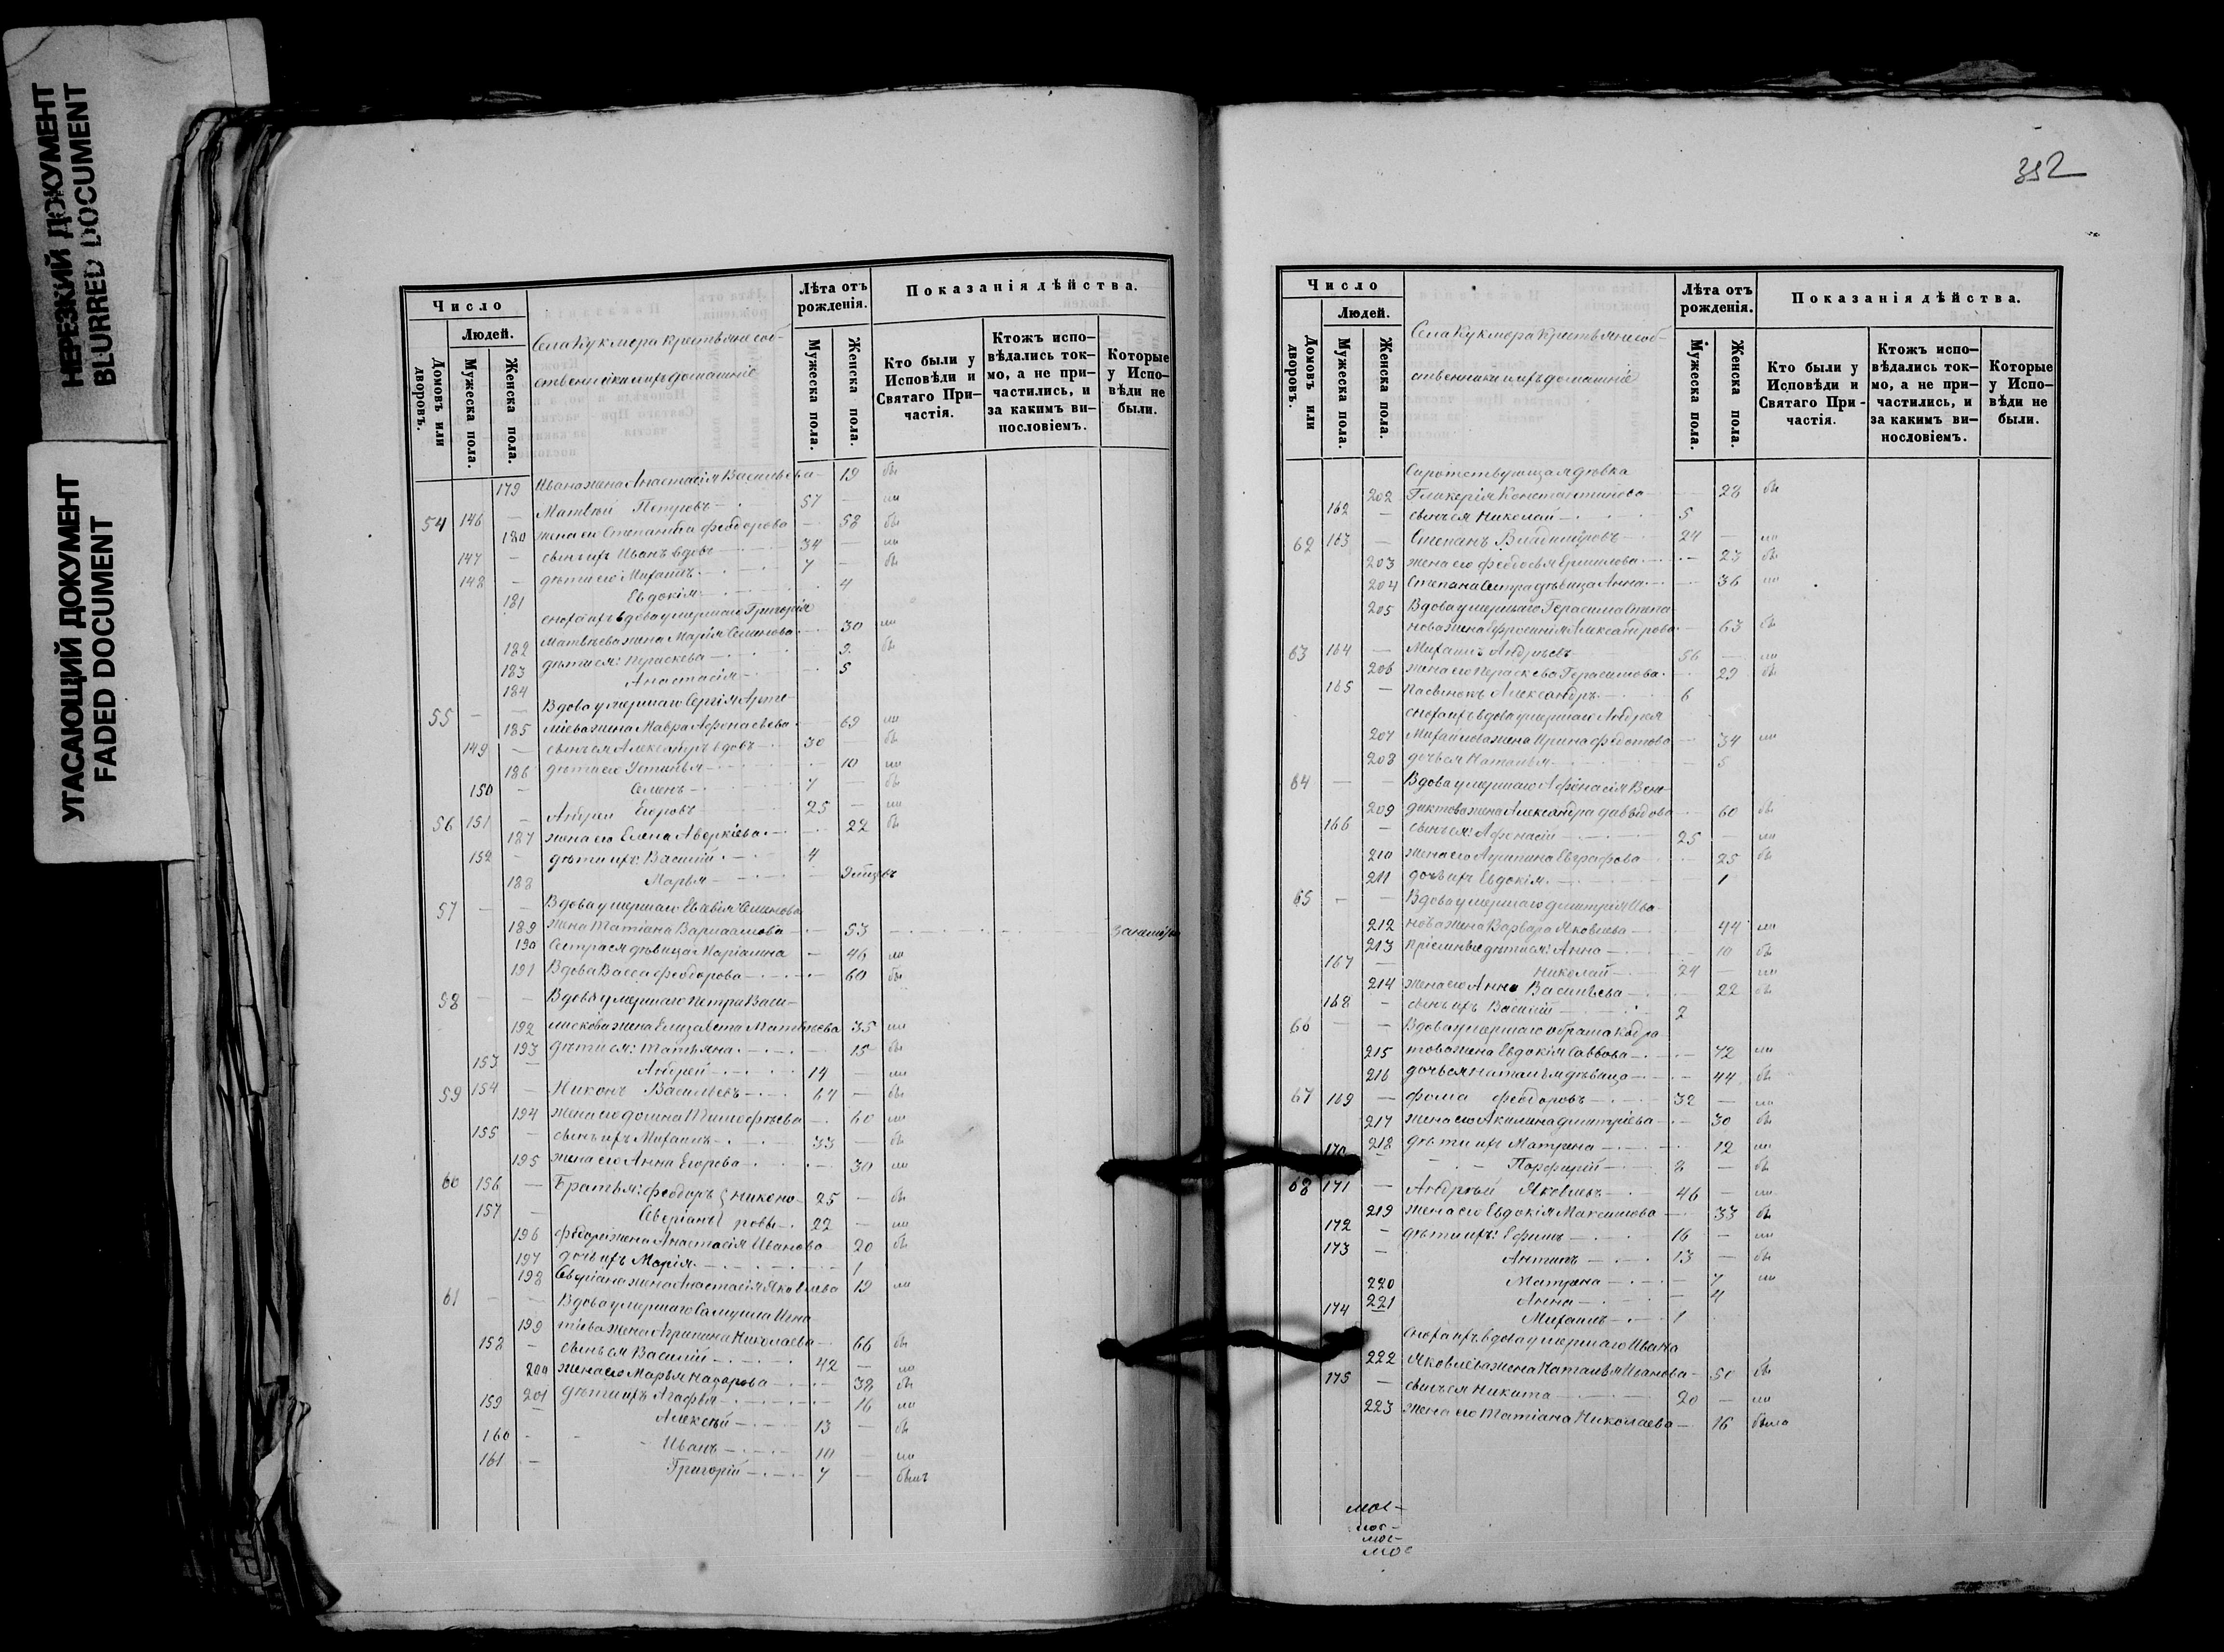 НЕРЕЗКИЙ ДОКУМЕНТ
BLURRED DOCUMENT
УГАСАЮЩИЙ ДОКУМЕНТ
FADED DOCUMENT
Число
Людей.
Домовъ или дворовъ.
Мужеска пола.
Женска пола.
Села Кукмора крестьяне соб-
ственники и ихъ домашніе
Лѣта отъ рожденія.
Мужеска пола.
Женска пола.
Показанія дѣйства.
Кто были у Исповѣди и Святаго При-частія.
Ктожъ испо-вѣдались ток-мо, а не при-частились, и за какимъ ви-нословіемъ.
Которые у Испо-вѣди не были.
179 Ивана жена Анастасія Васильева 19 бы
54 146 — Матвѣй Петровъ 57 — ли
180 жена его Степанида Феодорова — 58 бы
147 — сынъ ихъ Иванъ вдовъ 34 — ли
148 — дѣти его Михаилъ 7 — бы
181 Евдокія 4
сноха ихъ вдова умершаго Григорія
182 Матвѣева жена Марія Семенова 30 ли
183 дѣти ея: Параскева 9 бы
184 Анастасія 5
55 — — Вдова умершаго Сергія Арте-
185 міева жена Мавра Афонасьева 69 ли
149 — сынъ ея Александръ вдовъ 30 — бы
186 дѣти его Устинья 10 ли
150 — Семенъ 7 — бы
56 151 — Андрей Егоровъ 25 — ли
187 жена его Елена Аверкіева 22 бы
152 — дѣти ихъ: Василій 4
188 Марья
57 — — Вдова умершаго Семенова
189 жена Татіана Варлаамова 53
190 Сестра ея дѣвица Маріамна — 46 ли
191 Вдова Васса Феодорова 60 бы
58 — — Вдова умершаго Петра Васи-
192 жена Елизавета Матвѣева 35 ли
193 дѣти ея: Татьяна 15 бы
153 — Андрей 14 — ли
59 154 — Никонъ Васильевъ 64 — бы
194 жена его Домна Тимофѣева 60 ли
155 — сынъ ихъ Михаилъ 33 — бы
195 жена его Анна Егорова 30 ли
60 156 — Братья: Феодоръ } Никоно- 25 — бы
157 — Северіанъ } ровы 22 — ли
196 Феодора жена Анастасія Иванова 20 бы
197 дочь ихъ Марія 1
198 Северіана жена Анастасія Яковлева 19 ли
61 — — Вдова умершаго Самуила Игна-
199 тіева жена Агрипина Николаева 66 бы
158 — сынъ ея Василій 42 — ли
200 жена его Марья Назарова 38 бы
201 дѣти ихъ Агафья 16 ли
159 — Алексѣй 13 — бы
160 - Иванъ 10 — ли
161 — Григорій 7 — былъ
352
Число
Людей.
Домовъ или дворовъ.
Мужеска пола.
Женска пола.
Села Кукмора крестьяне соб-
ственники и ихъ домашніе
Лѣта отъ рожденія.
Мужеска пола.
Женска пола.
Показанія дѣйства.
Кто были у Исповѣди и Святаго При-частія.
Ктожъ испо-вѣдались ток-мо, а не при-частились, и за какимъ ви-нословіемъ.
Которые у Испо-вѣди не были.
Сиротствующая дѣвка
202 Гликерія Константинова 28 бы
162 — сынъ ея Николай 5
62 163 — Степанъ Владиміровъ 24 — ли
203 жена его Феодосья Ермилова 23 бы
204 Степана сестра дѣвица Анна 36 ли
205 Вдова умершаго Герасима Степа-
нова жена Ефросинія Александрова 63 бы
63 164 — Михаилъ Андреевъ 56 — ли
206 жена его Параскева Герасимова 29 бы
165 — пасынокъ Александръ 6
сноха ихъ вдова умершаго Андрея
207 Михайлова жена Ирина Федотова 34 ли
208 дочь ея Наталья 5
64 — — Вдова умершаго Афонасія Вене-
209 диктова жена Александра Давыдова 60 бы
166 — сынъ ея: Афонасій 25 — ли
210 жена его Агрипина Евграфова 25 бы
211 дочь ихъ Евдокія 1
65 — — Вдова умершаго Дмитрія Ива-
212 нова жена Варвара Яковлева 44 ли
213 Пріемные дѣти ея: Анна 10 бы
167 — Николай 24 — ли
214 жена его Анна Васильева 22 бы
168 — сынъ ихъ Василій 2
66 — — Вдова умершаго Абрама Кодра-
215 това жена Евдокія Саввова 72 ли
216 дочь ея Наталья дѣвица 44 бы
67 169 — Фома Феодоровъ 32 — ли
217 жена его Акилина Дмитріева 30 бы
218 дѣти ихъ Матрена 12 ли
170 — Порфирій 8 — бы
68 171 — Андрей Яковлевъ 46 — ли
219 жена его Евдокія Максимова 33 бы
172 — дѣти ихъ: Ефимъ 16 — ли
173 — Антипъ 13 — бы
220 Матрена — 7 ли
221 Анна — 4
174 Михаилъ 1
сноха ихъ вдова умершаго Ивана
222 Яковлева жена Наталья Иванова 50 бы
175 — сынъ ея Никита 20 — ли
223 жена его Татіана Николаева 16 была